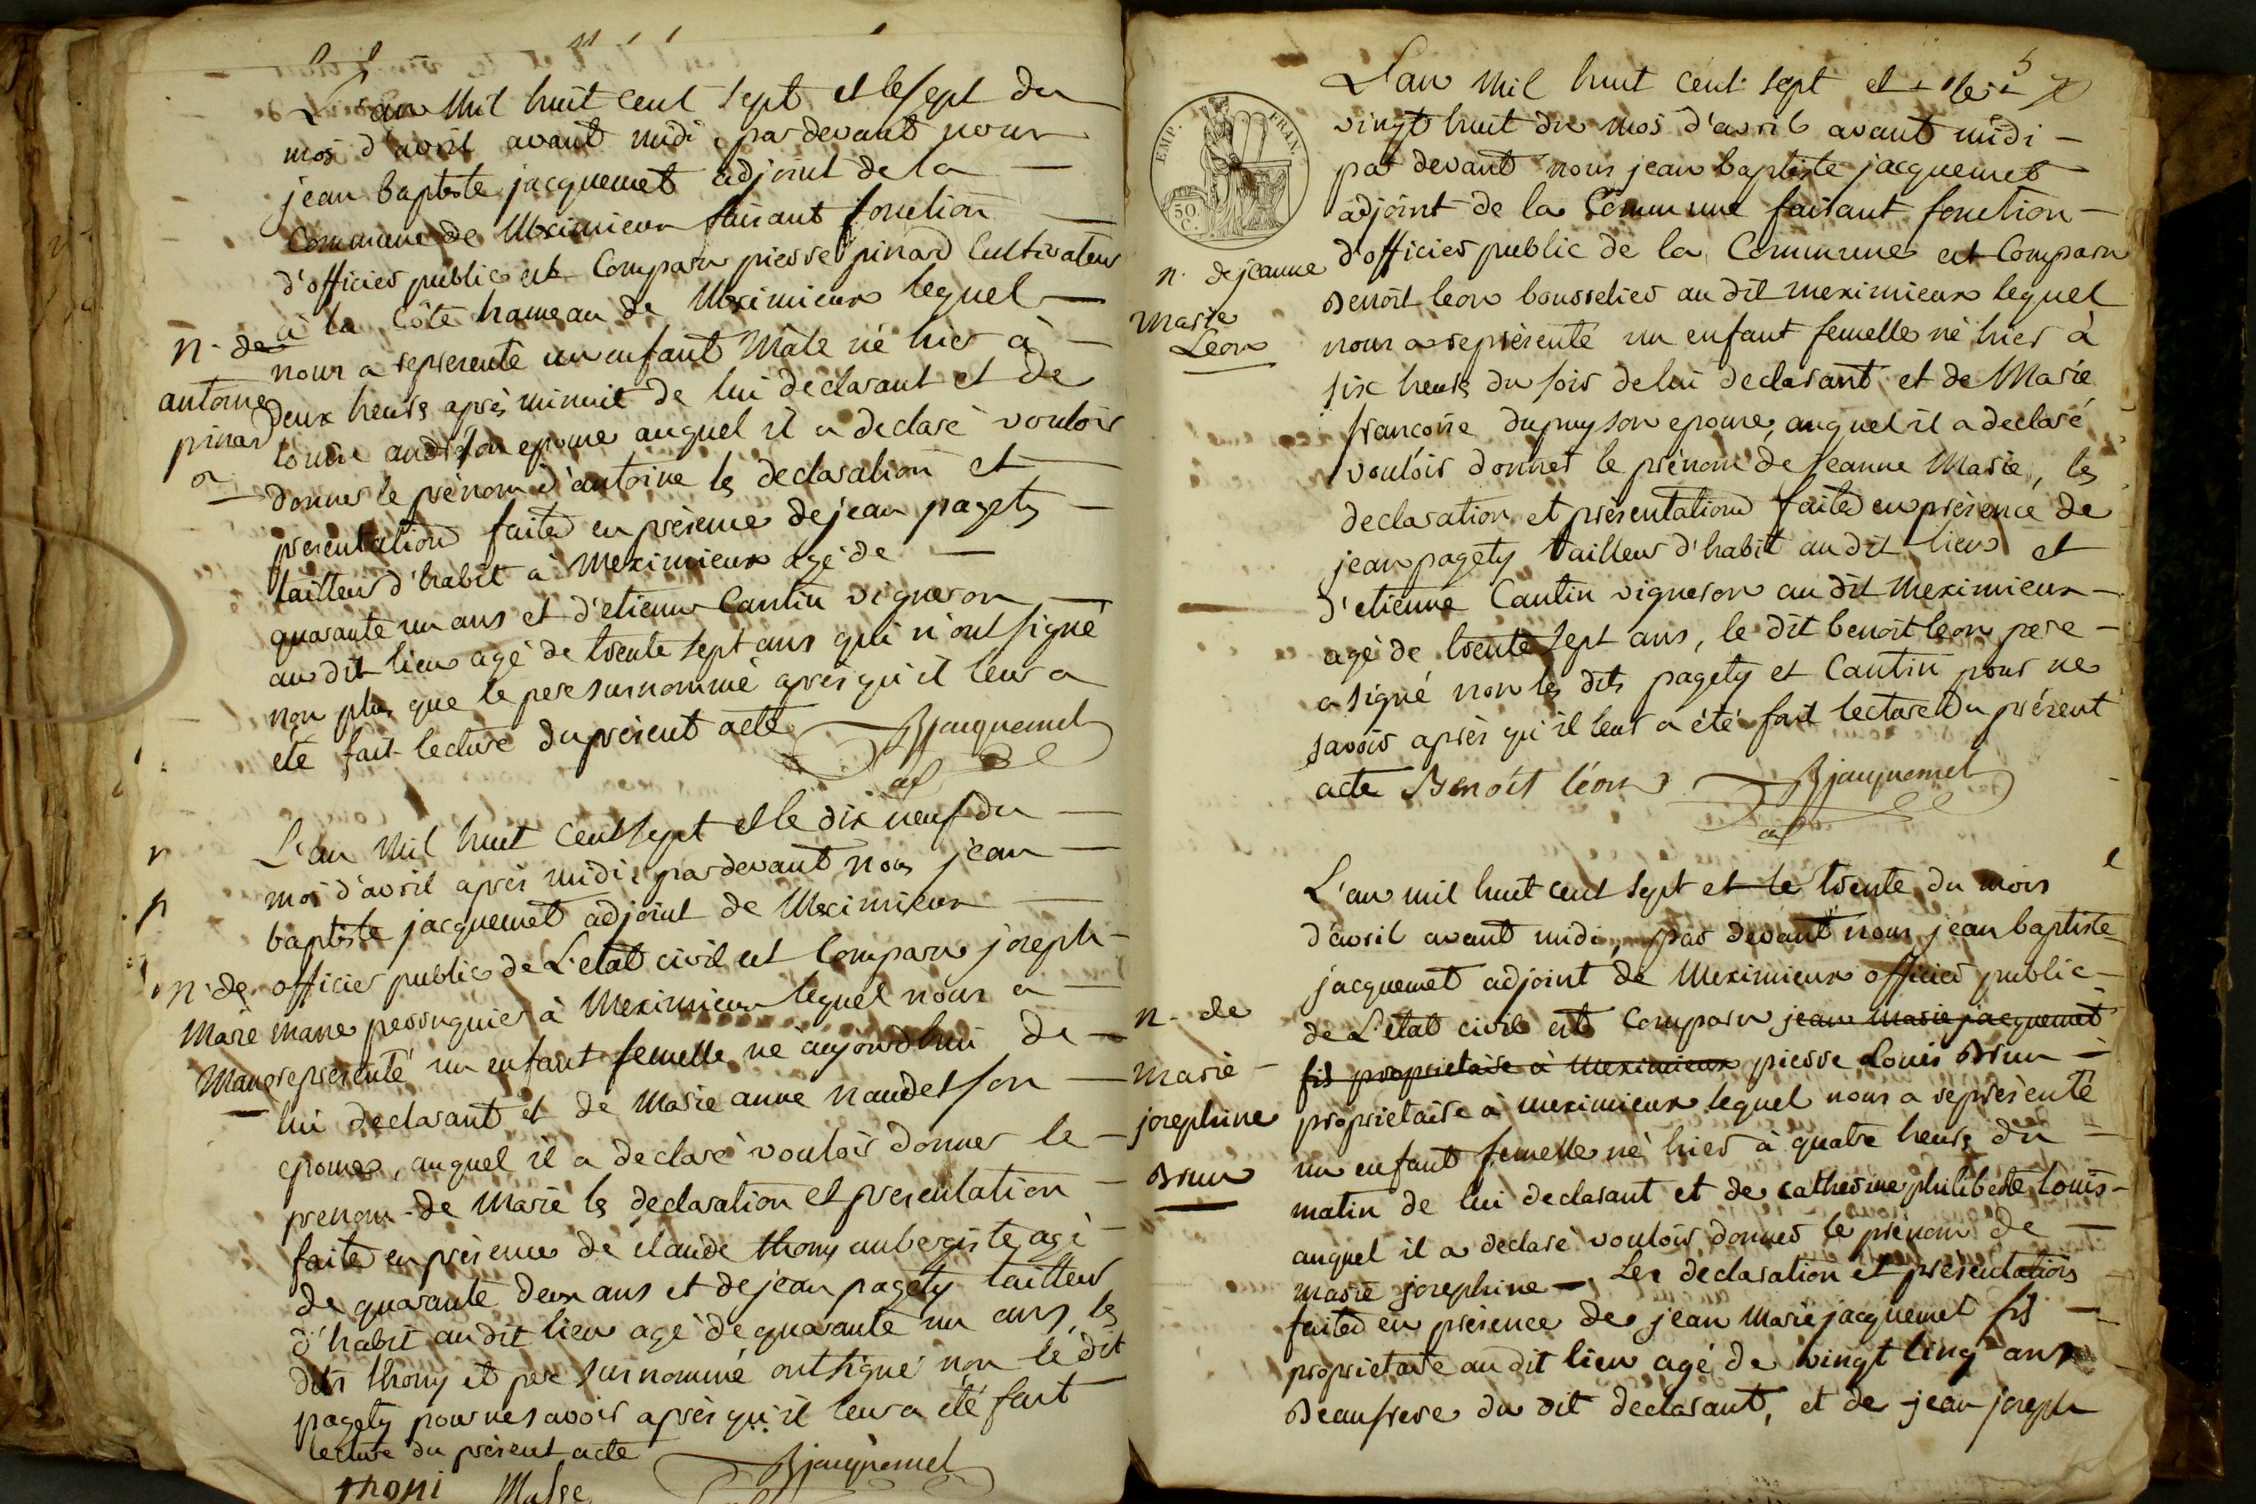 L'an mil huit cent sept et le sept du
mois d'avril avant midi, par devant nous
jean baptiste jacquemet adjoint de la
Commune de Meximieux faisant fonction
d'officier public est Comparu pierre pinard Cultivateur
à la Côte hameau de Meximieux lequel
N. de
nous a representé un enfant Mâle né hier à
antoine
deux heures après minuit de lui declarant et de
pinard
son epouse auquel il a declaré vouloir
donner le prénom d'antoine les declaration et
presentation faite en présence de jean pagety
tailleur d'habit à Meximieux agé de
quarante un ans et d'etienne Cantin vigneron
au dit lieu agé de trente sept ans qui n'ont signé
non plus que le pere surnommé après qu'il leur a
été fait lecture du présent acte
Bjacquemet
L'an mil huit cent sept et le dix neuf du
mois d'avril après midi, par devant nous jean
baptiste jacquemet adjoint de Meximieux
N. de
officier public de L'etat civil est Comparu joseph
Marie
masse perruquier à Meximieux lequel nous a
Masse
representé un enfant femelle né aujourdhui de
lui declarant et de Marie anne naudet son
epouse, auquel il a declaré vouloir donner le
prenom de Marie les declaration et presentation
faite en présence de claude thony aubergiste agé
de quarante deux ans et de jean pagety tailleur
d'habit au dit lieu agé de quarante un ans, les
dits thony et pere surnommé ont signé non le dit
pagety pour ne savoir après qu'il leur a été fait
lecture du présent acte
Thoni Masse
Bjacquemet
5
L'an mil huit cent sept et le
vingt huit du mois d'avril avant midi
par devant nous jean baptiste jacquemet
adjoint de la Commune faisant fonction
d'officier public de la Commune est Comparu
EMP. FRAN.
50 C.
N. de jeanne
Marie
Léon
Benoit leon bourrelier au dit meximieux lequel
nous a representé un enfant femelle né hier à
six heures du soir de lui declarant et de Marie
françoise dupuy son epouse, auquel il a declaré
vouloir donner le prénom de Jeanne Marie, les
declaration et présentation faite en présence de
jean pagety tailleur d'habit au dit lieu et
d'etienne Cantin vigneron au dit Meximieux
agé de trente sept ans, le dit benoit leon pere
a signé non les dits pagety et Cantin pour ne
savoir après qu'il leur a été fait lecture du présent
acte Benoit léon
Bjacquemet
L'an mil huit cent sept et le trente du mois
d'avril avant midi, par devant nous jean baptiste
jacquemet adjoint de Meximieux officier public
N. de
marie
josephine
Brun
de L'etat civil est Comparu jean marie jacquemet
fils proprietaire à Meximieux pierre Louis Brun
proprietaire à meximieux lequel nous a représenté
un enfant femelle né hier à quatre heures du
matin de lui declarant et de catherine philiberte Louis
auquel il a declaré vouloir donner le prénom de
marie josephine Les declaration et présentation
faite en présence de jean Marie jacquemet fils
proprietaire au dit lieu agé de vingt cinq ans
Beaufrere du dit declarant, et de jean joseph